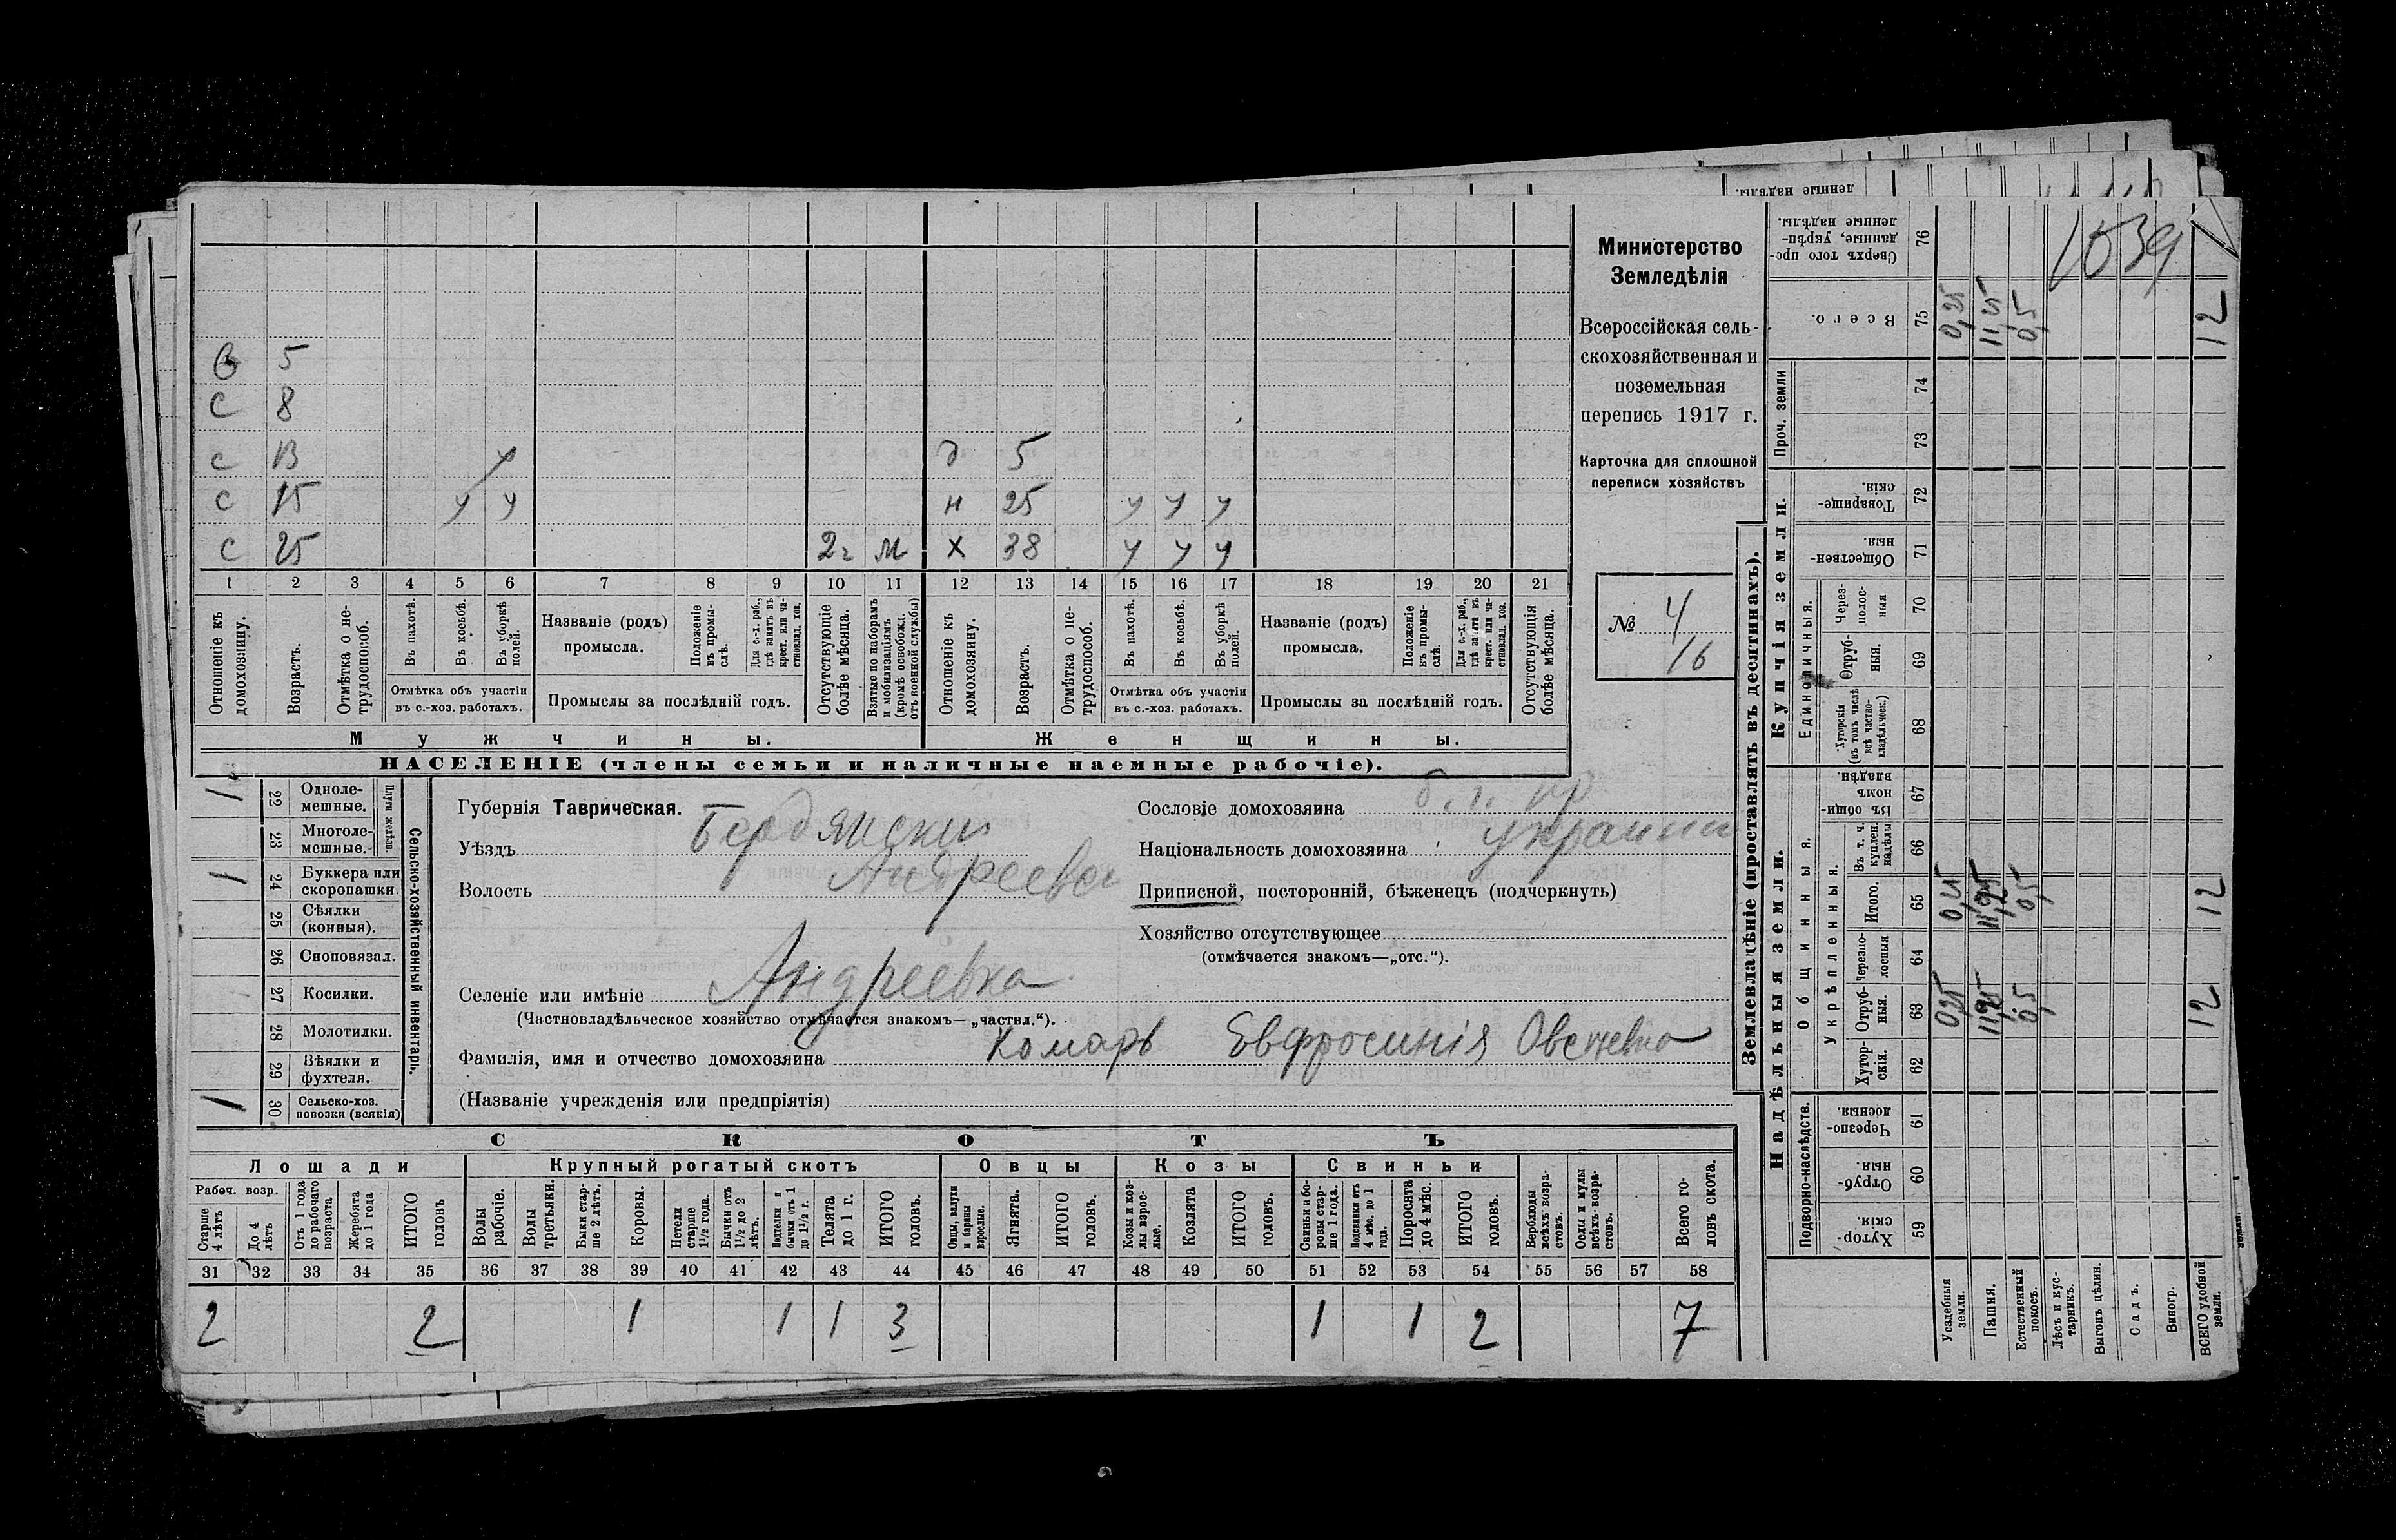 Министерство
Земледѣлія
Всероссійская сель-
скохозяйственная и
поземельная
перепись 1917 г.
Карточка для сплошной
переписи хозяйствъ
№ 4
16
5
с 8
с 13 у д 5
с 15 у у н 25 у у у
с 25 2 г м х 38 у у у
1 2 3 4 5 6 7 8 9 10 11 12 13 14 15 16 17 18 19 20 21
Отношеніе къ домохозяину.
Возрастъ.
Отмѣтка о не-трудоспособ.
Въ пахотѣ.
Въ косьбѣ.
Въ уборкѣ полей.
Отмѣтка объ участіи въ с.-хоз. работахъ.
Названіе (родъ) промысла.
Положеніе въ промы-слѣ.
Для с.-х. раб., гдѣ занятъ въ крест. или ча-стновлад. хоз.
Промыслы за послѣдній годъ.
Отсутствующіе болѣе мѣсяца.
Взятые по наборамъ и мобилизаціямъ (кромѣ освобожд. отъ военной службы)
Отношеніе къ домохозяину.
Возрастъ.
Отмѣтка о не-трудоспособ.
Въ пахотѣ.
Въ косьбѣ.
Въ уборкѣ полей.
Отмѣтка объ участіи въ с.-хоз. работахъ.
Названіе (родъ) промысла.
Положеніе въ промы-слѣ.
Для с.-х. раб., гдѣ занята въ крест. или ча-стновлад. хоз.
Промыслы за послѣдній годъ.
Отсутствующія болѣе мѣсяца.
Мужчины. Женщины.
НАСЕЛЕНІЕ (члены семьи и наличные наемные рабочіе).
1 22 Одноле-мешные.
23 Многоле-мешные.
Плуги желѣзн.
1 24 Буккера или скоропашки.
25 Сѣялки (конныя).
26 Сноповязал.
27 Косилки.
28 Молотилки.
29 Вѣялки и фухтеля.
1 30 Сельско-хоз. повозки (всякія)
Сельско-хозяйственный инвентарь.
Губернія Таврическая.
Уѣздъ Бердянский
Волость Андреевс
Селеніе или имѣніе Андреевка
(Частновладѣльческое хозяйство отмѣчается знакомъ—„частвл.“).
Фамилія, имя и отчество домохозяина Комарь Евфросинія
(Названіе учрежденія или предпріятія)
Сословіе домохозяина
Національность домохозяина украин
Приписной, посторонній, бѣженецъ (подчеркнуть)
Хозяйство отсутствующее
(отмѣчается знакомъ—„отс.“).
СКОТЪ
Лошади Крупный рогатый скотъ Овцы Козы Свиньи
Рабоч. возр.
Старше 4 лѣтъ
До 4 лѣтъ
Отъ 1 года до рабочаго возраста
Жеребята до 1 года
ИТОГО головъ
Волы рабочіе.
Волы третьяки.
Быки стар-ше 2 лѣтъ.
Коровы.
Нетели старше 1½ года.
Бычки отъ 1½ до 2 лѣтъ.
Подтелки и бычки отъ 1 до 1½ г.
Телята до 1 г.
ИТОГО головъ.
Овцы, валухи и бараны взрослые.
Ягнята.
ИТОГО головъ.
Козы и коз-лы взрос-лые.
Козлята
ИТОГО головъ.
Свиньи и бо-ровы стар-ше 1 года.
Подсвинки отъ 4 мѣс. до 1 года.
Поросята до 4 мѣс.
ИТОГО головъ.
Верблюды всѣхъ возра-стовъ.
Ослы и мулы всѣхъ возра-стовъ.
Всего го-ловъ скота.
31 32 33 34 35 36 37 38 39 40 41 42 43 44 45 46 47 48 49 50 51 52 53 54 55 56 57 58
2 2 1 1 1 3 1 1 2 7
Землевладѣніе (проставлять въ десятинахъ).
Надѣльныя земли. Купчія земли.
Подворно-наслѣдств.
Общинныя.
Укрѣпленныя.
Единоличныя.
Проч. земли
Хутор-скія. 59
Отруб-ныя. 60
Черезпо-лосныя. 61
Хутор-скія. 62
Отруб-ныя. 63
Черезпо-лосныя 64
Итого. 65
Въ т. ч. куплен. надѣлы 66
Въ общин-номъ владѣн. 67
Хуторскія (въ томъ числѣ всѣ частно-владѣльческ.) 68
Отруб-ныя. 69
Через-полос-ныя 70
Обществен-ныя. 71
Товарище-скія. 72
73
74
Всего. 75
Сверхъ того про-данные, укрѣп-ленные надѣлы. 76
Усадебныя земли. 0,25 0,25 0,25
Пашня. 11,25
Естественный покосъ. 0,5 0,5 0,5
Лѣсъ и кус-тарникъ.
Выгонъ цѣлин.
Садъ.
Виногр.
ВСЕГО удобной земли. 12 12 12
1039
ленные надѣлы.